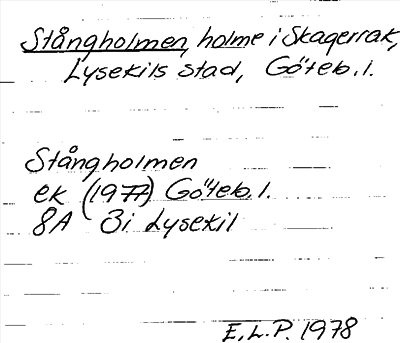 Stångholmen, holme i Skagerrak,
Lysekils stad, Göteb. l.
Stångholmen
ek (1977) Göteb. l.
8A 3i Lysekil
E.L.P. 1978